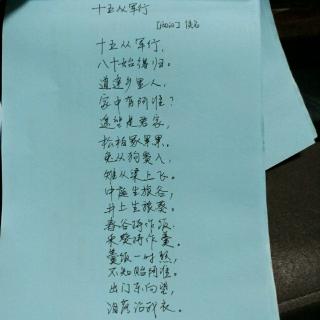 十五从军行
[两汉] 佚名
十五从军行,
八十始得归。
道逢乡里人,
家中有阿谁?
遥望是君家,
松柏冢累累。
兔从狗窦入,
雉从梁上飞。
中庭生旅谷,
井上生旅葵。
舂谷持作饭,
采葵持作羹。
羹饭一时熟,
不知贻阿谁。
出门东向望,
泪落沾我衣。